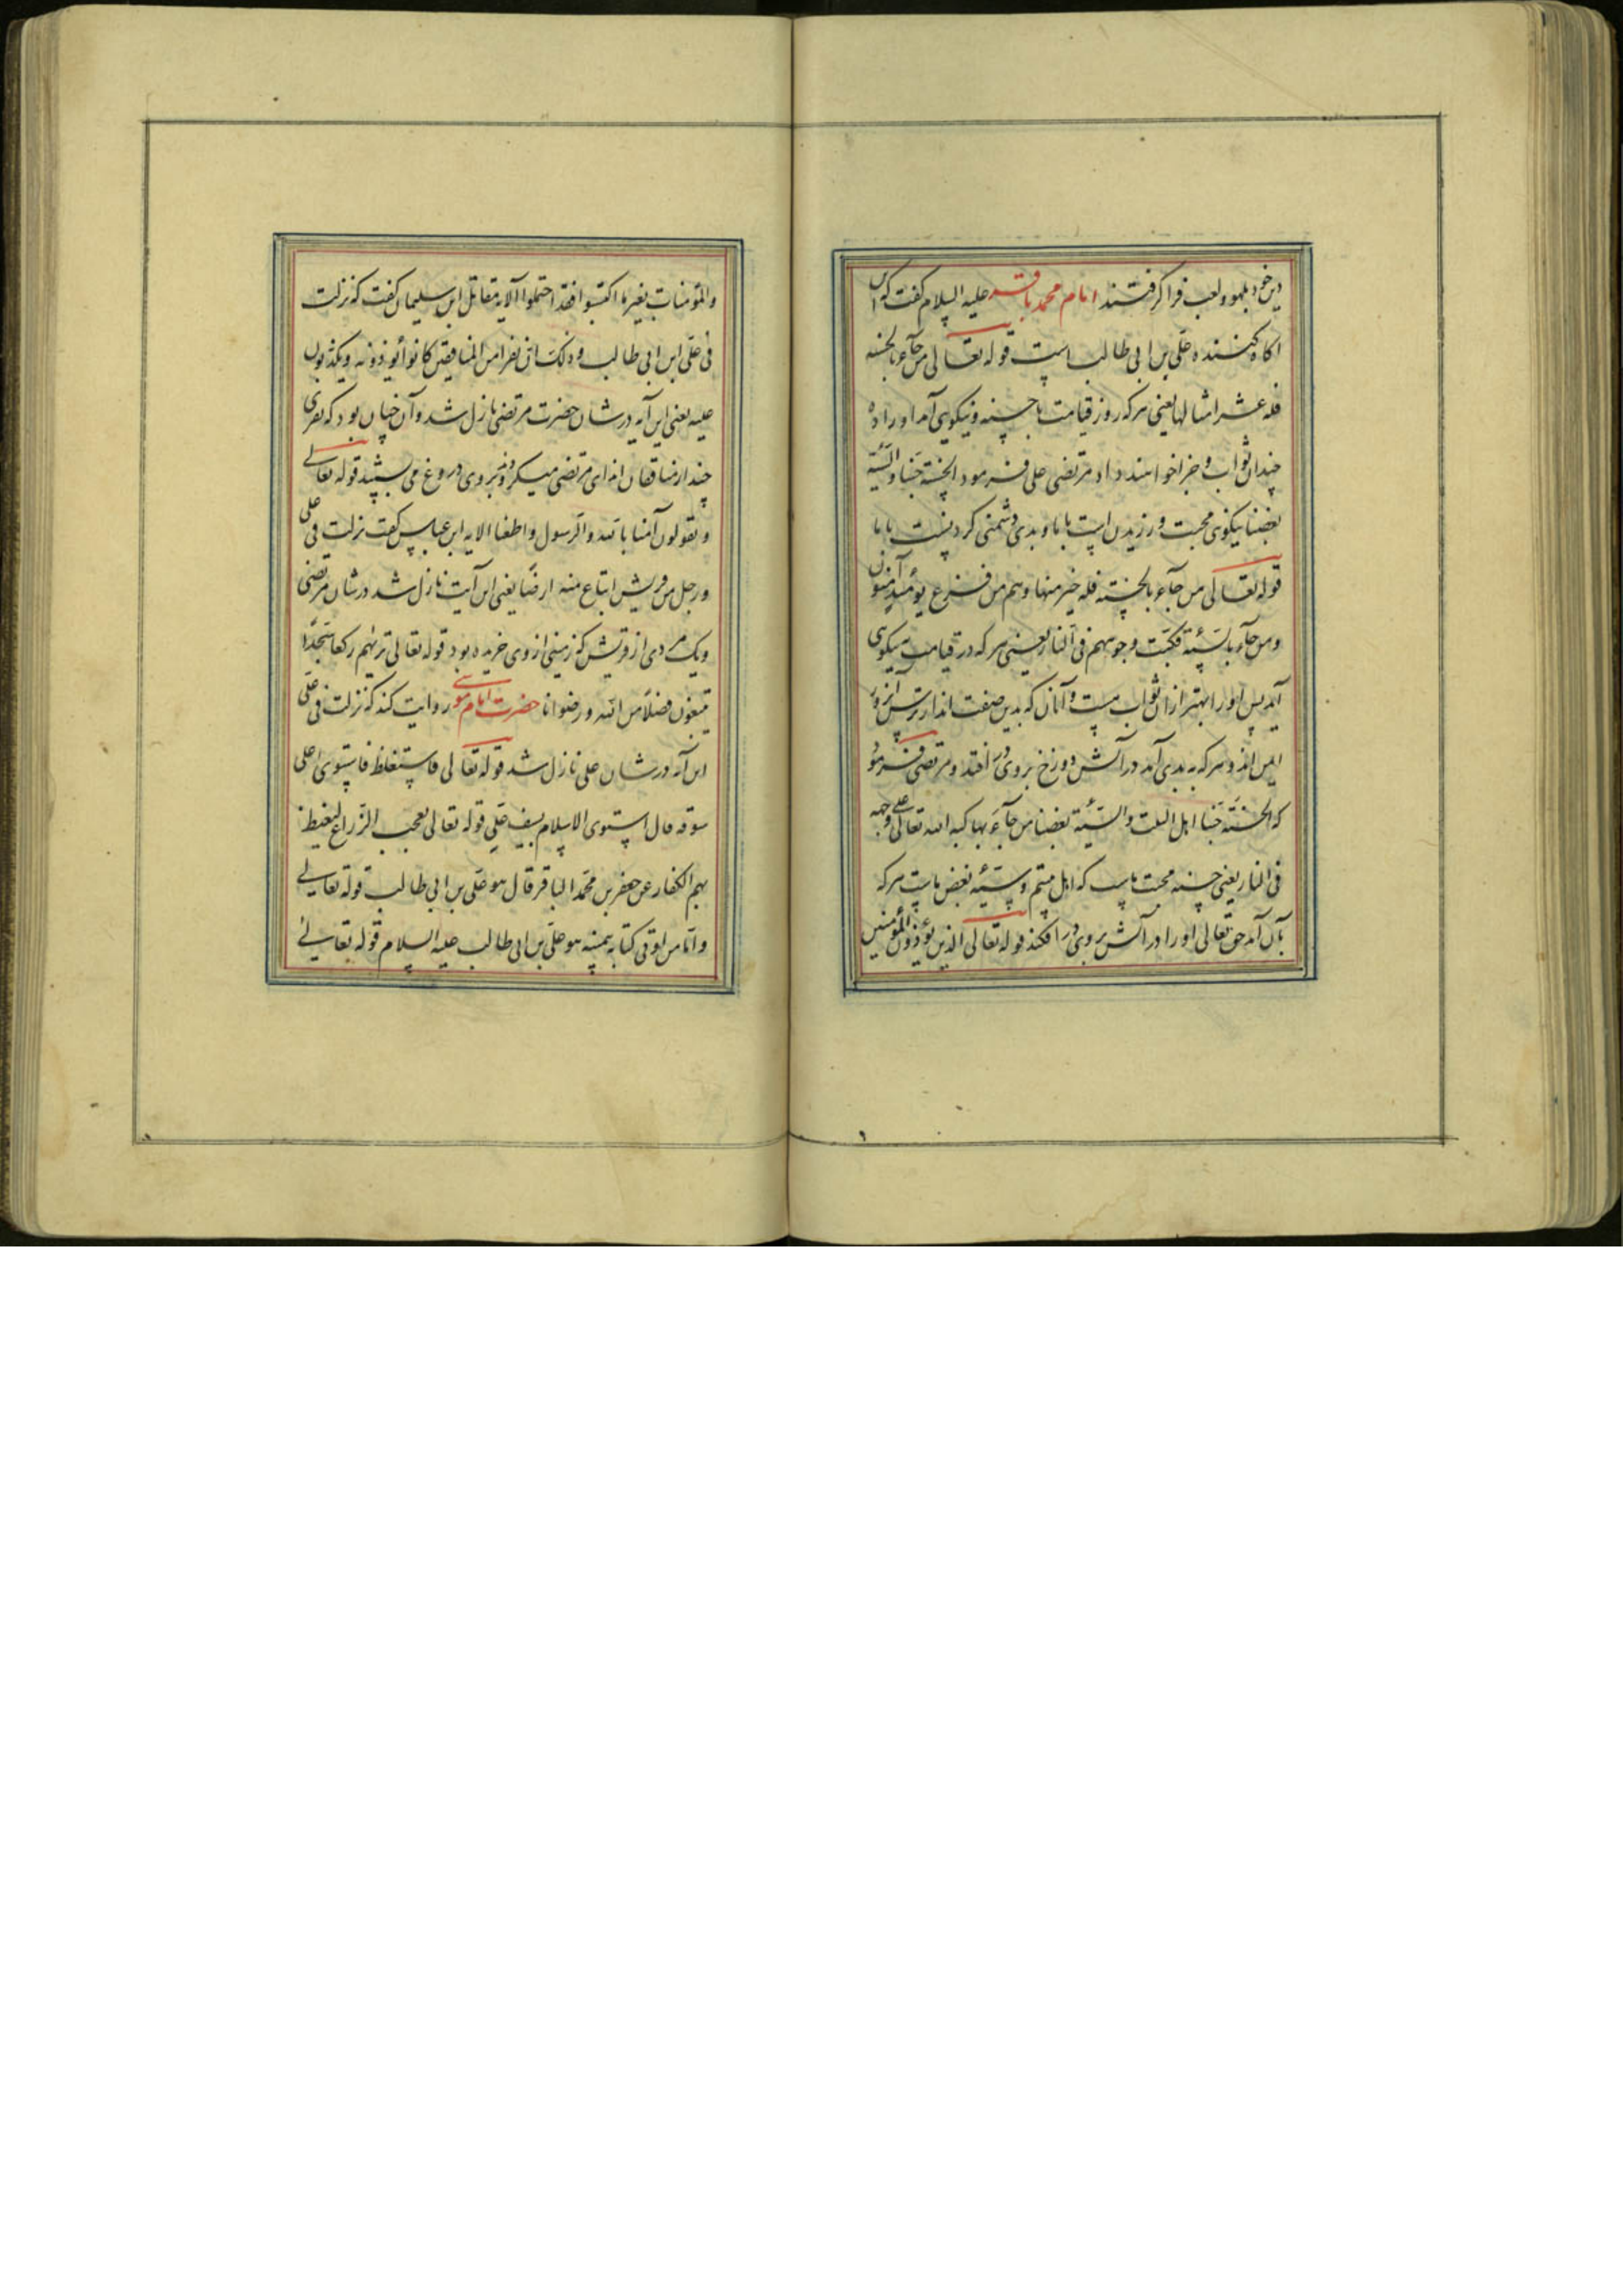 دین خود بلهو ولعب فرا گرفتند امام محمد باقر علیه السلام گفت که آن
اکاه کنسنده علی بن ابی طالب است قوله تعالی من جآء بالحسنه
فله عشر امثالها یعنی هرکه روز قیامت با حسنه ونیکویی آمد اورا ده
چندان ثواب وجزا خواهند داد مرتضی علی فرمود الحسنة حبنا والسیئة
بغضنا نیکوی محبت ورزیدن است باما وبدی دشمنی کردنست باما
قوله تعالی من جآء بالحسنة فله خیر منها وهم من فزع یومئذ آمنون
ومن جآء بالسیئة فکبت وجوههم فی النار یعنی هرکه در قیامت نیکوی
آمد پس اورا بهتر از آن ثواب هست وآنان که بدین صفت اند از ترس آنروز
ایمن اند وهرکه به بدی آمد در آتش دوزخ بروی در افتد ومرتضی فرمود
که الحسنة حبنا اهل البیت والسیئة بغضنا من جآء بها کبه الله تعالی علی وجهه
فی النار یعنی حسنه محبت ماست که اهل بیتیم وسیئه بغض ماست هرکه
بآن آمد حق تعالی اورا در آتش بروی در افکند قوله تعالی الذین یؤذون المؤمنین
والمؤمنات بغیر ما اکتسبوا فقد احتملوا الآلایه مقاتل ابن سلیمان گفت که نزلت
فی علی ابن ابی طالب وذلک ان نفرا من المنافقین کانوا یؤذونه ویکذبون
علیه یعنی این آیه درشان حضرت مرتضی نازل شد وآن چنان بود که نفری
چند از منافقان ایذای مرتضی میکردند وبروی دروغ می بستند قوله تعالی
ویقولون آمنا بالله والرسول واطعنا الایه ابن عباس گفت نزلت فی علی
ورجل من قریش ابتاع منه ارضا یعنی این آیت نازل شد درشان مرتضی
ویک مردی از قریش که زمینی از وی خریده بود قوله تعالی تریهم رکعا سجدا
یبتغون فضلا من الله ورضوانا حضرت امام موسی روایت کند که نزلت فی علی
این آیه درشان علی نازل شد قوله تعالی فاستغلظ فاستوی علی
سوقه قال استوی الاسلام بسیف علی قوله تعالی یعجب الزراع لیغیظ
بهم الکفار عن جعفر بن محمد الباقر قال هو علی بن ابی طالب قوله تعالی
واما من اوتی کتابه بیمینه هو علی بن ابی طالب علیه السلام قوله تعالی